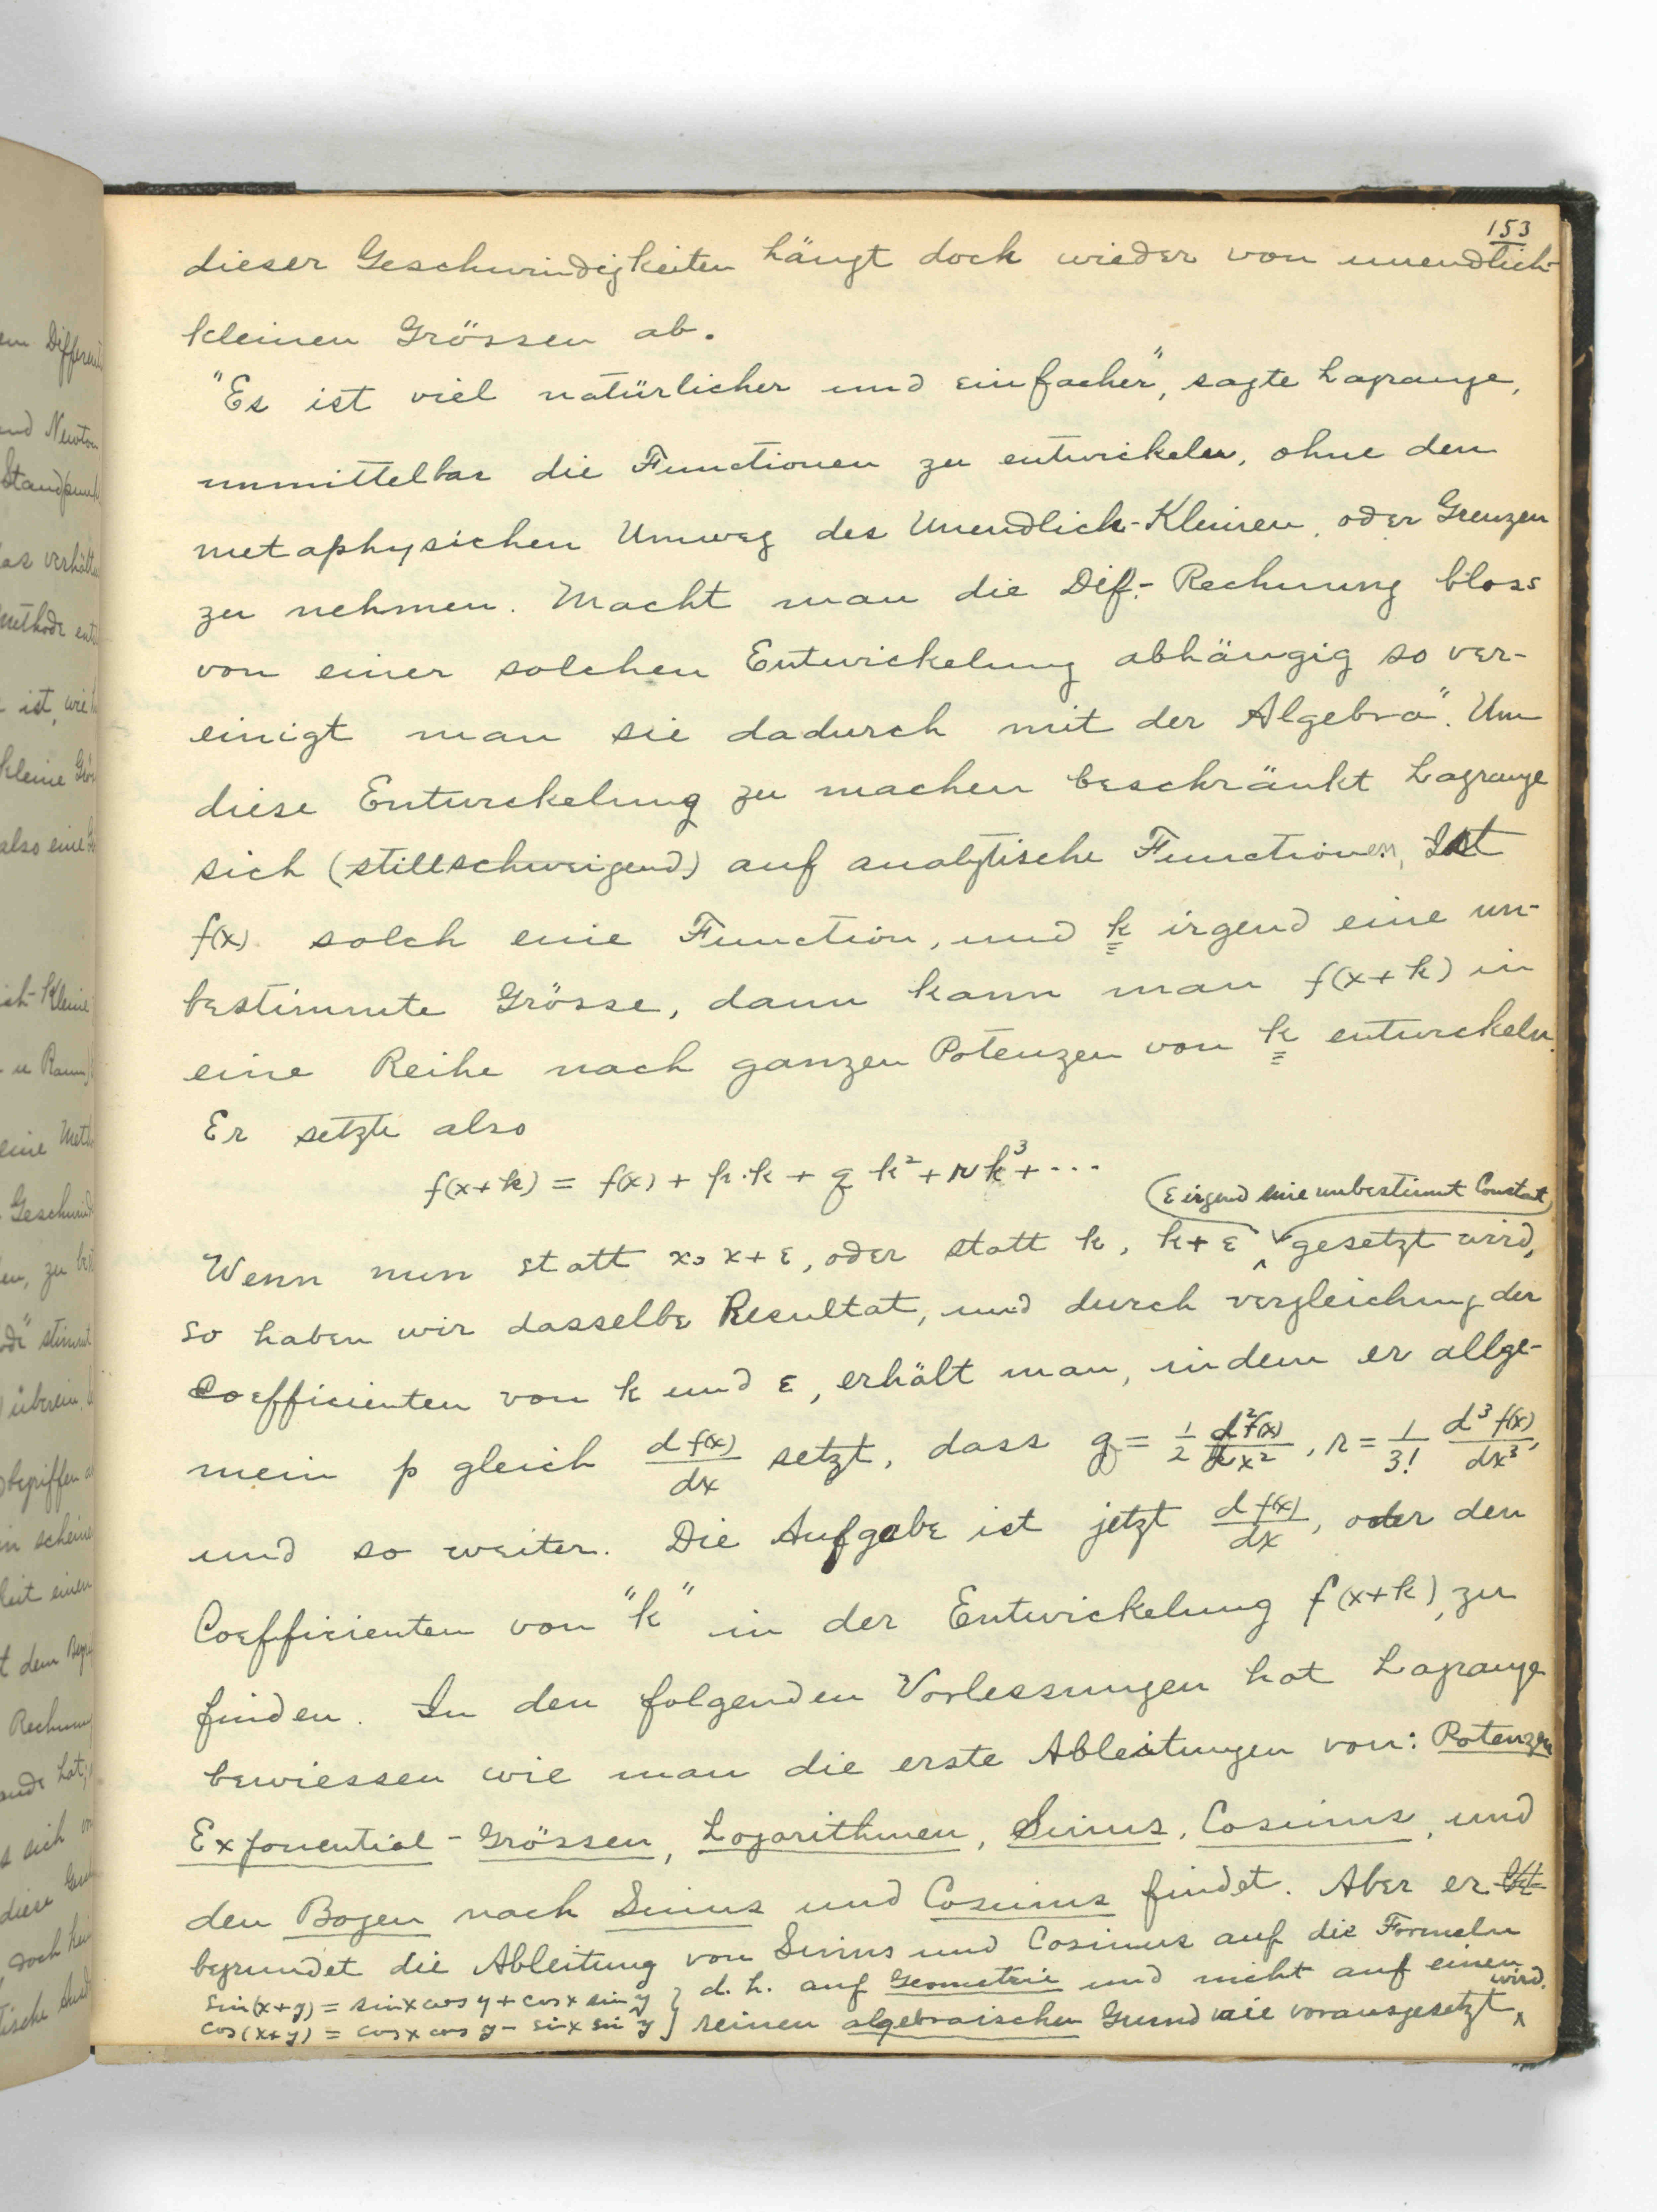 153
dieser Geschwindigkeiten hängt doch wieder von unendlich-
kleinen Grössen ab.
"Es ist viel natürlicher und einfacher", sagte Lagrange,
"unmittelbar die Functionen zu entwickeln, ohne den
metaphysichen Umweg des Unendlich-Kleinen, oder Grenzen
zu nehmen. Macht man die Dif.- Rechnung bloss
von einer solchen Entwickelung abhängig so ver-
einigt man sie dadurch mit der Algebra". Um
diese Entwickelung zu machen beschränkt Lagrange
sich (stillschweigend) auf analytische Functionen, Ist
f(x) solch eine Function, und k irgend eine un-
bestimmte Grösse, dann kann man f(x+k) in
eine Reihe nach ganzen Potenzen von k entwickeln.
Er setzte also
f(x+k) = f(x) + p·k + q k² + r k³ + ···
(ε irgend eine unbestimmt Constat)
Wenn nun statt x, x+ε, oder statt k, k+ε gesetzt wird,
so haben wir dasselbe Resultat, und durch vergleichung der
Coefficienten von k und ε, erhält man, indem er allge-
mein p gleich df(x)/dx setzt, dass q = 1/2 d²f(x)/dx², r = 1/3! d³f(x)/dx³,
und so weiter. Die Aufgabe ist jetzt df(x)/dx, oder den
Coefficienten von "k" in der Entwickelung f(x+k), zu
finden. In den folgenden Vorlessungen hat Lagrange
bewiessen wie man die erste Ableitungen von: Potenzen
Exponential - Grössen, Logarithmen, Sinus, Cosinus, und
den Bogen nach Sinus und Cosinus findet. Aber er
begrundet die Ableitung von Sinus und Cosinus auf die Formeln
sin(x+y) = sinx cos y + cosx sin y } d. h. auf Geometrie und nicht auf einen
cos(x+y) = cosx cos y - sinx sin y } reinen algebraischen Grund wie vorausgesetzt wird.